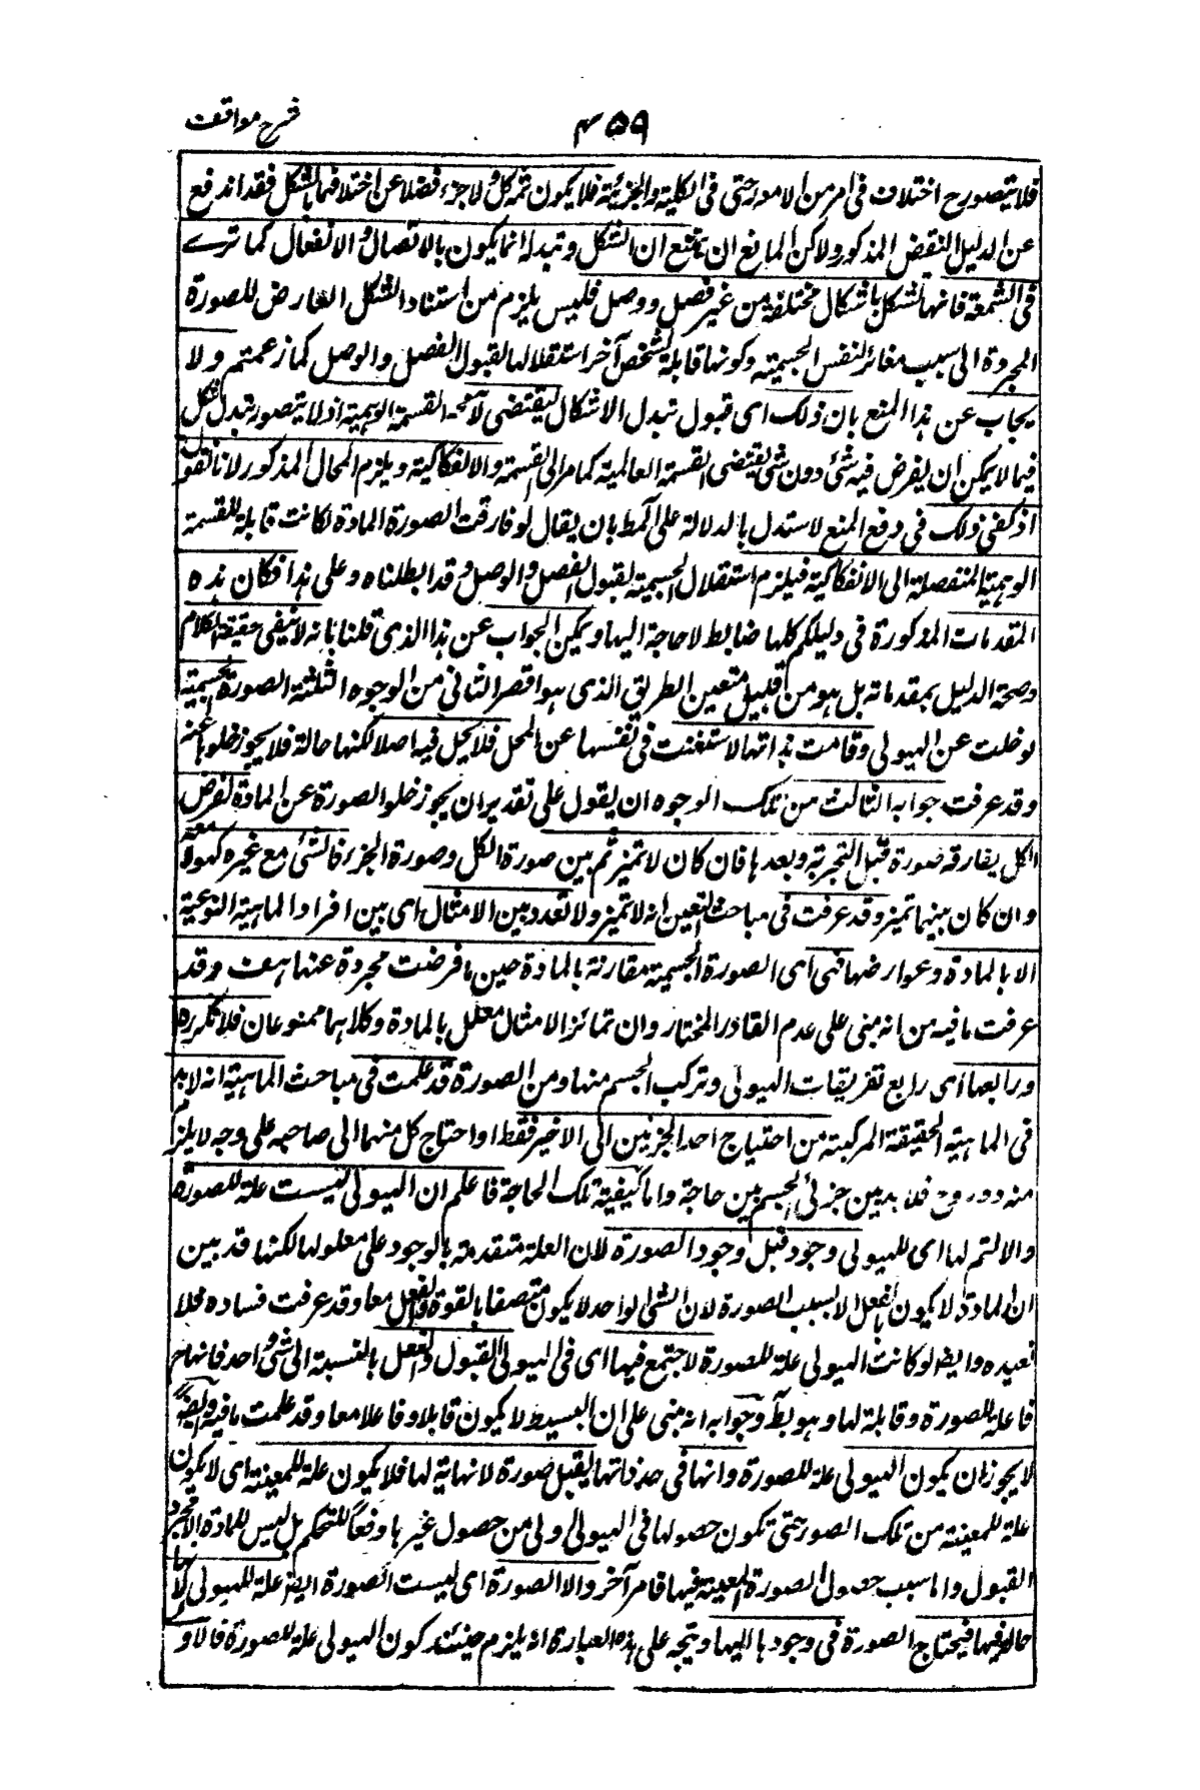 شرح مواقف
۴۵۹
فلا يتصور ح اختلاف فى امر من الامور حتى فى الكلية والجزئية فلا يكون ثمه كل ولا جزء فضلا عن اختلافهما بالشكل فقد اندفع
عن الدليل النقض المذكور ولاكن المانع ان يمنع ان الشكل وتبدله انما يكون بالاتصال والانفعال كما ترے
فى الشمعة فانها تتشكل باشكال مختلفة من غير فصل ووصل فليس يلزم من استناد الشكل العارض للصورة
المجردة الى سبب مغائر لنفس الجسمية وكونها قابلة لتشخص آخر استقلالها لقبول الفصل والوصل كما زعمتم ولا
يجاب عن هذا المنع بان ذلك اى قبول تبدل الاشكال يقتضى لا محه القسمة الوهمية اذ لا يتصور تبدل شكل
فيما لا يمكن ان يفرض فيه شئ دون شئ يقتضى القسمة العالمية كما مر الى القسمة والانفكاكية ويلزم المحال المذكور لانا نقول
اذ كفى ذلك فى دفع المنع لاستدل بالدلالة على المط بان يقال لو فارقت الصورة المادة لكانت قابلة للقسمة
الوهمية المنفصلة الى الانفكاكية فيلزم استقلال الجسمية لقبول الفصل والوصل وقد ابطلناه وعلى هذا فكان هذه
المقدمات المذكورة فى دليلكم كلها ضابط لا حاجة اليها ويمكن الجواب عن هذا الذى قلنا بانه لا ينفى حقيقة الكلام
وصحة الدليل بمقدماته بل هو من قبيل متعين الطريق الذى هو اقصر الثانى من الوجوه الثلثة الصورة الجسمية
لو خلت عن الهيولى وقامت بذاتها لاستغنت فى نفسها عن المحل فلا يحل فيه اصلا لكنها حالة فلا يجوز خلوها عنه
وقد عرفت جوابه الثالث من تلك الوجوه ان يقول على تقدير ان يجوز خلو الصورة عن المادة لنفرض
الكل يفارقه صورة قبل التجزية وبعدها فان كان لا تميز ثم بين صورة الكل وصورة الجزء فالشئ مع غيره كهو لا معه
وان كان بينهما تميز وقد عرفت فى مباحث التعين انه لا تميز ولا تعدد بين الامثال اى بين افراد الماهية النوعية
الا بالمادة وعوارضها فهى اى الصورة الجسمية مقارنة بالمادة حين ما فرضت مجردة عنها هف وقد
عرفت ما فيه من انه مبنى على عدم القادر المختار وان تمائز الامثال معلل بالمادة وكلاهما ممنوعان فلا نكرره
ورابعها اى رابع تفريقات الهيولى وتركب الجسم منها ومن الصورة قد علمت فى مباحث الماهية انه لا بد
فى الماهية الحقيقة المركبة من احتياج احد الجزئين الى الاخير فقط او احتياج كل منهما الى صاحبه على وجه لا يلزم
منه دور وح فلا بد بين جزئى الجسم من حاجة واما كيفية تلك الحاجة فاعلم ان الهيولى ليست علة للصورة
والا لتم لها اى للهيولى وجود قبل وجود الصورة لان العلة متقدمة بالوجود على معلولها لكنها قد بين
ان المادة لا يكون بالفعل الا بسبب الصورة لان الشئ الواحد لا يكون متصفا بالقوة والفعل معا وقد عرفت فساده فلا
نعيده وايضا لو كانت الهيولى علة للصورة لاجتمع فيها اى فى الهيولى القبول والفعل بالنسبة الى شئ واحد فانها ح
فاعلة للصورة وقابلة لها وهو بط وجوابه انه مبنى على ان البسيط لا يكون قابلا وفاعلا معا وقد علمت ما فيه وايضا
لا يجوز ان يكون الهيولى علة للصورة وانها فى حد ذاتها يقبل صورة لا نهاية لها فلا يكون علة للمعينة اى لا يكون
علة للمعينة من تلك الصور حتى تكون حصولها فى الهيولى اولى من حصول غيرها دفعا للتحكم بل ليس للمادة الا مجرد
القبول واما سبب حصول الصورة المعينة فيها فامر آخر والا الصورة اى ليست الصورة ايضا علة للهيولى لانها
حالة فيها فيحتاج الصورة فى وجودها اليها ويتجه على هذه العبارة انه يلزم حينئذ كون الهيولى علة للصورة فالاو